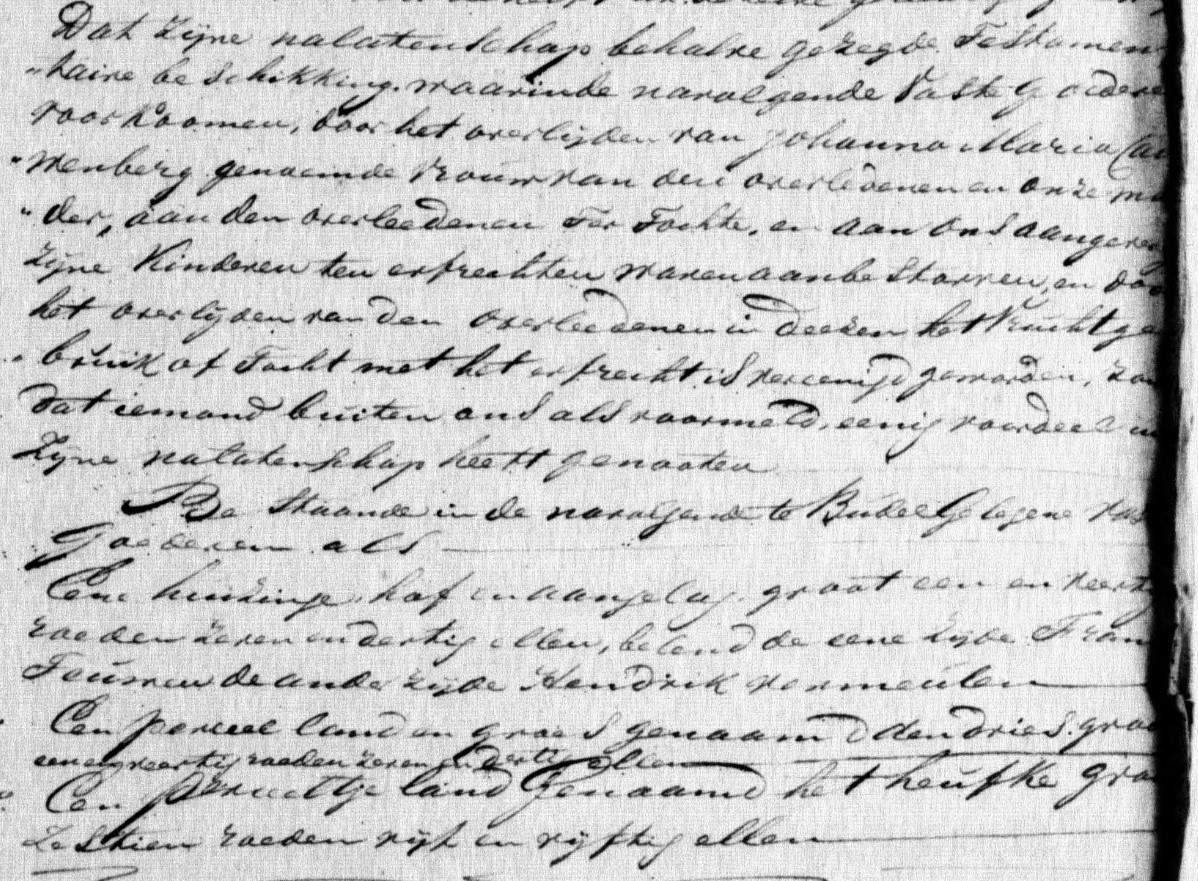 Dat zijne nalatenschap behalve gezegde Testamen
"taire beschikking, waarinde navolgende Vaste Goedere
voorkoomen, door het overlijden van Johanna Maria Cau
"wenberg genoemde vrouw van den overledenen en onze moe
"der, aan den overleedenen ter Tochte, en aan ons aangeven
zijne Kinderen ten erfrechten waren aanbestorven, en door
het overlijden van den overleedenen in deezen het Vruchtge
"bruik of Tocht met het erfrecht is vereenigd geworden, zon
dat iemand buiten ons als voormeld, eenig voordeel in
zijne nalatenschap heeft genooten
Bestaande in de navolgende te Budel Gelegene vas
Goederen als
Eene huizinge, hof en aangelag, groot een en veertig
roeden zeven en dertig ellen, belend de eene zijde Fran
Teuwen de ander zijde Hendrik vermeulen
Een perceel land en groes genaamd den dries, groo
een en veertig roeden zeven en dertig ellen
Een perceeltje land Genaamd het heufke groo
zestien roeden vijf en vijftig ellen